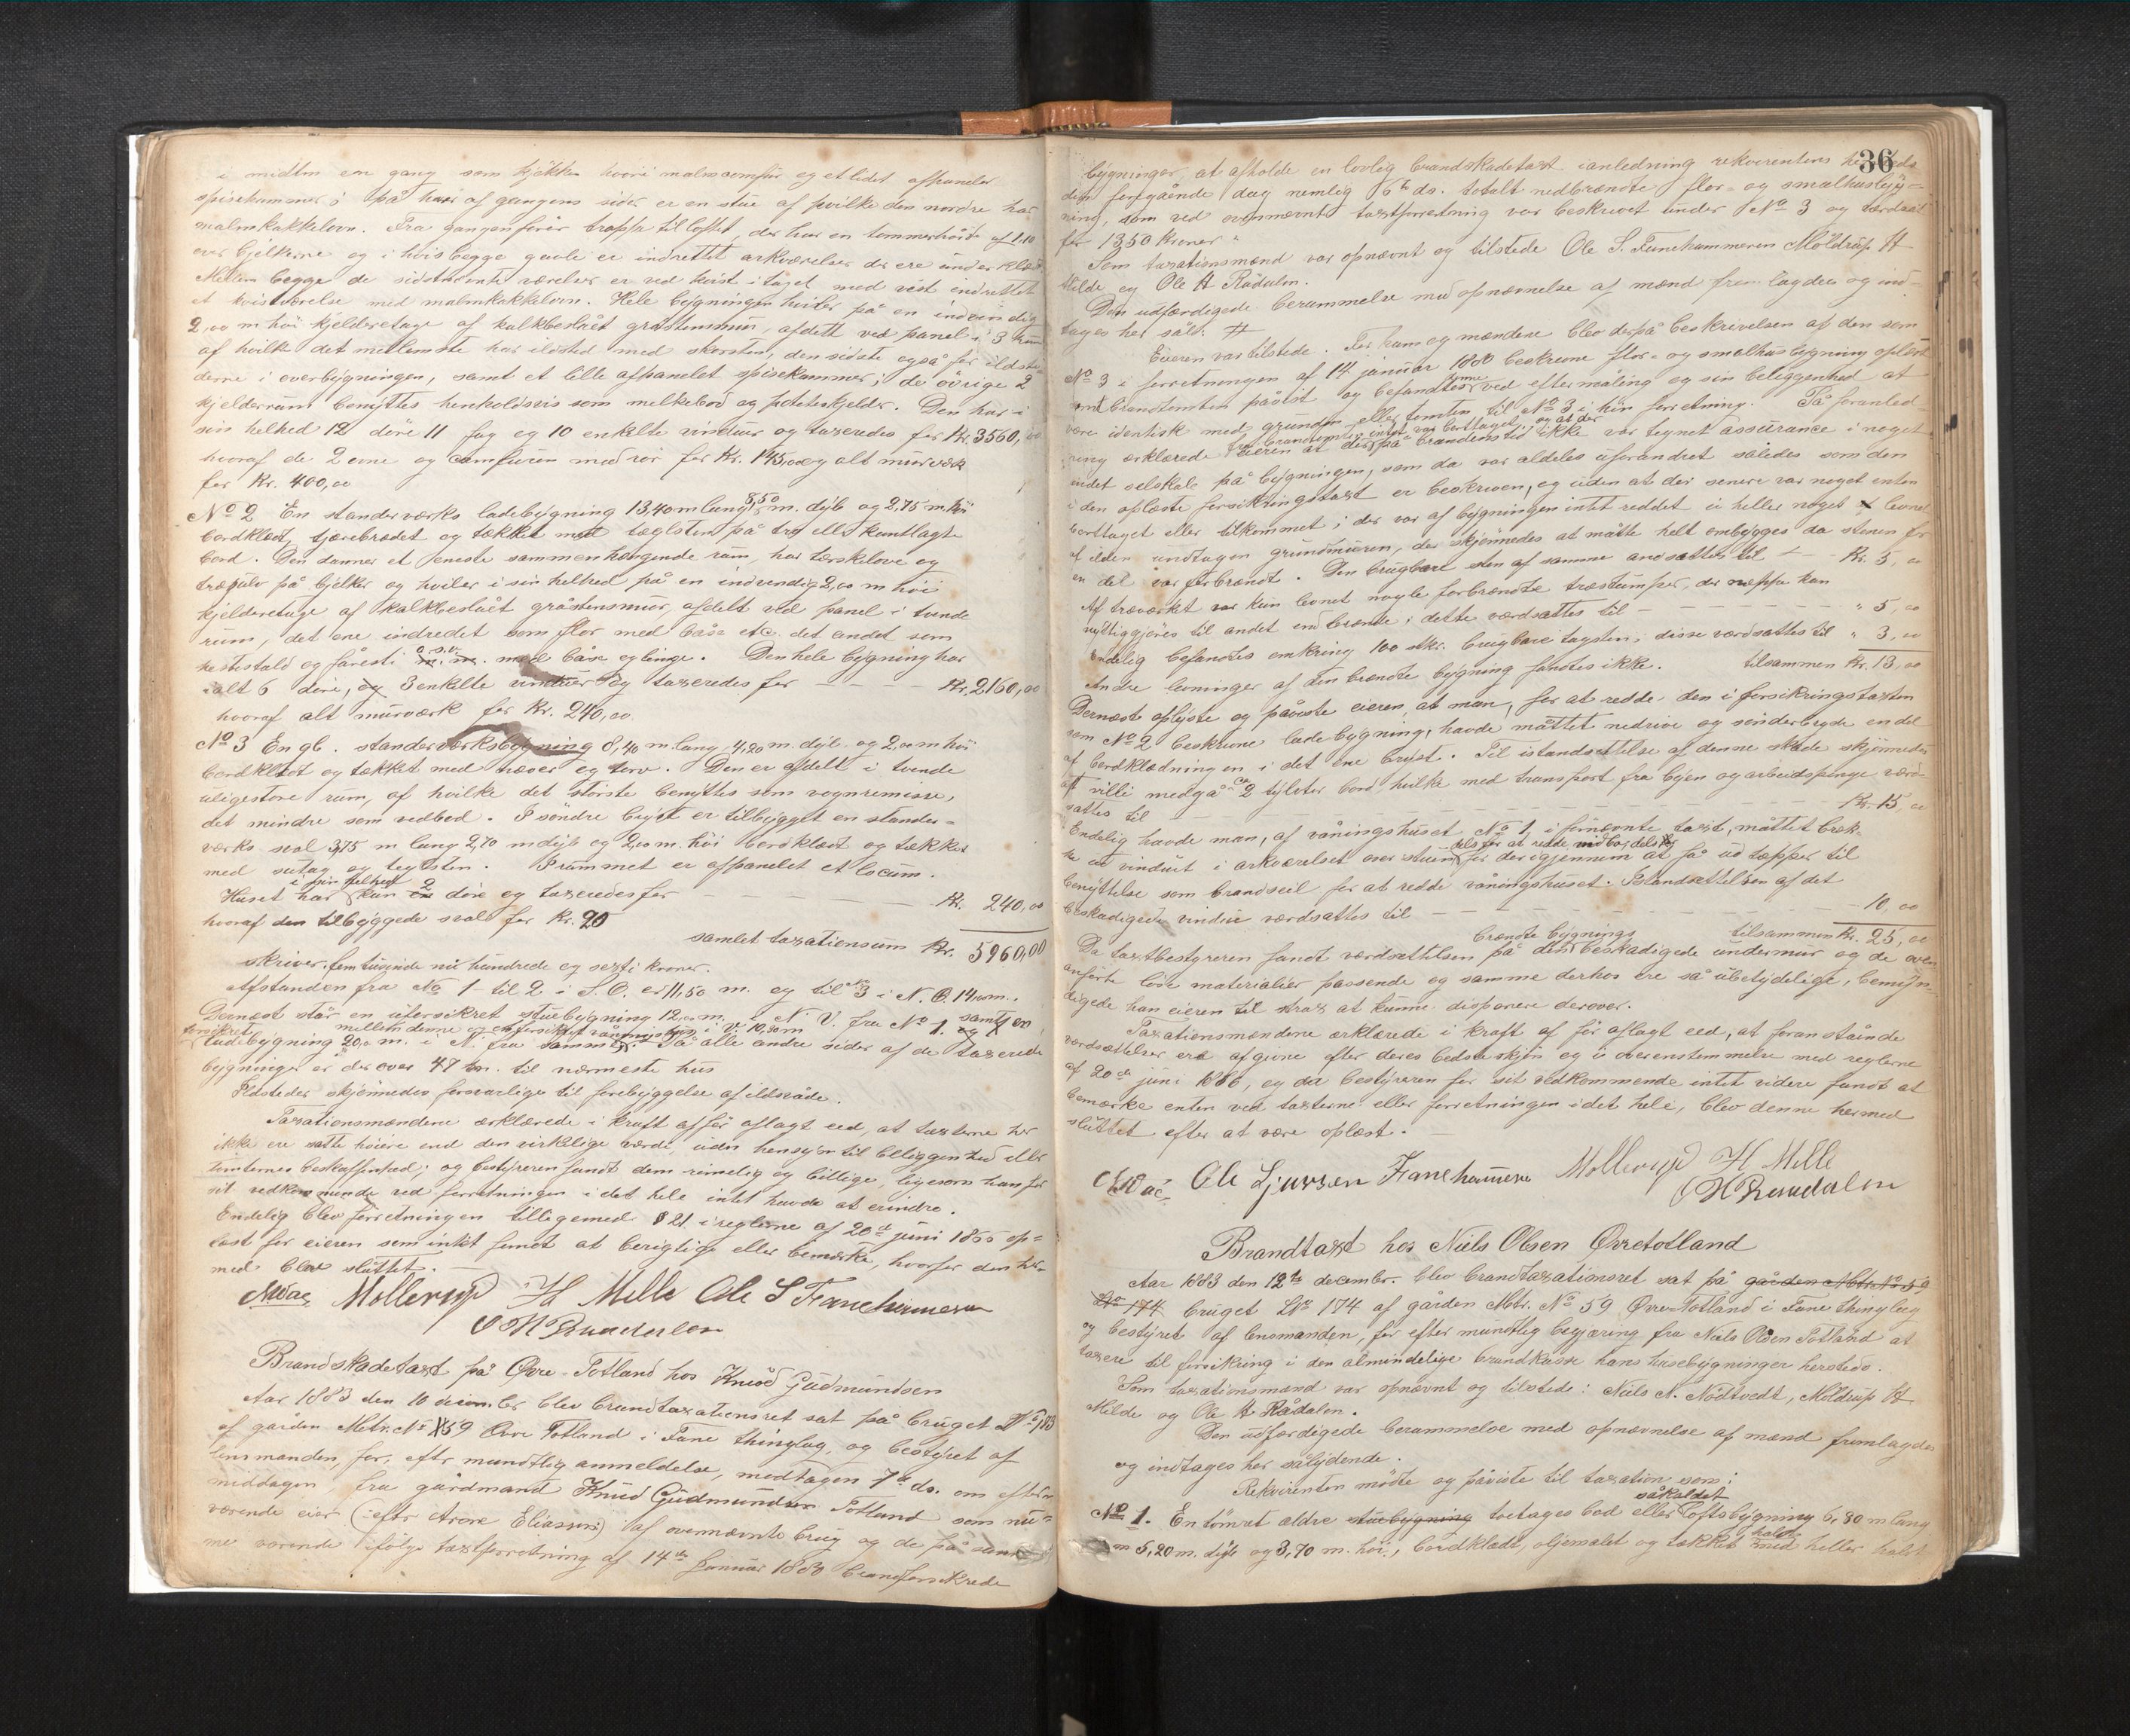 i midten en gang som kjøkken hvori malmcomfür og et lidet afpanelet
spisekammer; på hver af gangens sider er en stue af hvilke den nordre har
malmkakkelovn. Fra gangen fører trappe til loftet, der har en tømmerhøide af 1,10
over bjelkerne og i hvis begge gavle er indrettet arkværelser der ere underklædt
Mellem begge de sidstnævnte værelser er ved kvist i taget mod vest indrettet
et kvistværelse med malmkakkelovn. Hele bygningen hviler på en indvendig
2,00 m høi kjelderetage af kalkbeslået gråstensmur, afdelt ved panel i 3 rum
af hvilke det mellemste har ildsted med skorsten, den sidste også for ildste-
derne i overbygningen, samt et lille afpanelet spisekammer; de øvrige 2
kjelderrum benyttes henholdsvis som melkebod og poteteskjelder. Den har i
sin helhed 12 döre 11 fag og 10 enkelte vinduer og taxeredes for Kr. 3560,00
hvoraf de 2 ovne og comfuren med rör for Kr. 145,00 og alt murværk
for Kr. 400,00
No 2 En standerværks ladebygning 13,40 m lang 8,50 m. dyb og 2,75 m høi
bordklædt, tjærebrædet og tækket med teglsten på tro elle kantlagte
bord. Den danner et eneste sammenhængende rum, har tærskelove og
trægulv på bjelker og hviler i sin helhed på en indvendig 2,00 m høi
kjelderetage af kalkbeslået gråstensmur, afdelt ved panel i tvende
rum, det ene indredet som flor med båse etc. det andet som
hestestald og fåresti o.s.v. med båse og binge. Den hele bygning har
ialt 6 döre, og 3 enkelte vinduer og taxeredes for — — — Kr. 2160,00
hvoraf alt murværk for Kr. 240,00.
No 3 En gl. standerværksbygning 8,40 m. lang 4,20 m. dyb og 2,00 m høi
bordklædt og tækket med næver og torv. Den er afdelt i tvende
uligestore rum, af hvilke det største benyttes som vognremisse,
det mindre som vedbod. I søndre bryst er tilbygget en stander-
værks sval 3,75 m lang 2,70 m dyb og 2,00 m. høi bordklædt og tækket
med sutag og teglsten. I rummet er afpanelet et locum.
Huset har i sin helhed kun 2 döre og taxeredes for — — — Kr. 240,00
hvoraf den tilbyggede sval for Kr. 20
samlet taxationsum Kr. 5960,00
skriver fem tusinde ni hundrede og sexti kroner.
Afstanden fra No 1 til 2 i S.O. er 11,50 m. og til No 3 i N.O. 14,00 m.
Dernæst står en uforsikret stuebygning 12,00 m. i N.V. fra No 1. samt en
forsikret mellem denne og en forsikret våningsbygn i V. 10,30 m
ladebygning 20,00 m. i N. fra samme. På alle andre sider af de taxerede
bygninger er der over 47 m. til nærmeste hus
Ildsteder skjønnedes forsvarlige til forebyggelse af ildsvåde.
Taxationsmændene erklærede i kraft af før aflagt eed, at taxterne her
ikke ere satte høiere end den virkelige værdi, uden hensyn til beliggenhed eller
tomternes beskaffenhed; og bestyreren fandt dem rimelig og billige, ligesom han for
sit vedkommende ved forretningen i det hele intet havde at erindre.
Endelig blev forretningen tilligemed § 21 i reglerne af 20de juni 1866 op-
læst for eieren som intet fandt at berigtige eller bemærke, hvorfor den her-
med blev sluttet. —
Mollerup H Milde Ole S Fanehammeren
O H Raadalen
Brandskadetaxt på Øvre-Totland hos Knud Gudmundsen
Aar 1883 den 10 decembr. blev brandtaxationsret sat på bruget LNo 173
af gården Matr. No 59 Øvre Totland i Fane thinglag, og bestyret af
lensmanden, for, efter mundtlig anmeldelse, modtagen 7de ds. om efter-
middagen, fra gårdmand Knud Gudmundsen Totland som nu-
værende eier (: efter Arone Eliassen :) af ovennævnte brug og de på sam-
me værende ifølge taxtforretning af 14de Januar 1880 brandforsikrede
36
bygninger, at afholde en lovlig brandskadetaxt i anledning rekvirentens
den foregående dag nemlig 6te ds. totalt nedbrændte flor- og smalhusbyg-
ning, som ved ovennævnte taxtforretning var beskrevet under No 3 og værdsat
for 1350 kroner
Som taxationsmænd var opnævnt og tilstede Ole S. Fanehammeren Möldrup H
Milde og Ole H Rådalen.
Den udfærdigede berammelse med opnævnelse af mænd fremlagdes og ind-
tages her sål.
Eieren var tilstede. For ham og mændene blev derpå beskrivelsen af den som
No 3 i forretningen af 14 januar 1880 beskrevne flor- og smalhusbygning oplæst
omt brandtomten påvist og befandtes denne ved eftermåling og sin beliggenhed at
være identisk med grunden eller tomten til No 3 i hin forretning. På foranled-
ning erklærede eieren at der på brandenstid ikke var tegnet assurance i noget
andet selskab på bygningen, som da var aldeles uforandret således som den
i den oplæste forsikringstaxt er beskreven, og uden at der senere var noget enten
borttaget eller tilkommet; der var af bygningen intet reddet ei heller noget levnet
af ilden undtagen grundmuren, der skjønnedes at måtte helt ombygges da stenen for
en del var forbrændt. Den brugbare sten af samme ansattes til — Kr. 5,00
Af træværket var kun levnet nogle forbrændte træstumper, der neppe kan
nyttiggjöres til andet end brænde; dette værdsattes til — — — " 5,00
Endelig befandtes omkring 100 stkr. brugbare tagsten; disse værdsattes til " 3,00
Andre levninger af den brændte bygning fandtes ikke. tilsammen Kr. 13,00
Dernæst oplyste og påviste eieren, at man, for at redde den i forsikringstaxten
som No 2 beskrevne ladebygning, havde måttet nedrive og sönderbryde en del
af bordklædningen i det ene bryst. Til istandsættelse af denne skade skjønnedes
at villi medgå ca 2 tylvter bord hvilke med transport fra byen og arbeidspenge værd-
sattes til — — — Kr. 15,00
Endelig havde man, af våningshuset No 1 i fornævnte taxt, måttet bræk-
ke et vindue i arkværelset over stuen dels for at redde indbo, dels for derigjennem at få ud tæpper til
benyttelse som brandseil for at redde våningshuset. Istandsættelsen af det
beskadigede vindue værdsattes til — — — 10,00
tilsammen Kr. 25,00
Da taxtbestyreren fandt værdsættelsen på den brændte bygnings beskadigede undermur og de oven-
anførte løse materialier passende og samme derhos ere så ubetydelige, bemyn-
digede han eieren til strax at kunne disponere derover.
Taxationsmændene erklærede i kraft af før aflagt eed, at foranstående
værdsættelser ere afgivne efter deres bedste skjøn og i overenstemmelse med reglerne
af 20de juni 1866, og da bestyreren for sit vedkommende intet videre fandt at
bemærke enten ved taxterne eller forretningen i det hele, blev denne hermed
sluttet efter at være oplæst. —
Ole Sjursen Fanehammeren Mollerup H Milde
O H Raadalen
Brandtaxt hos Niels Olsen Øvretotland
Aar 1883 den 12te decembr. blev brandtaxationsret sat på gården Mtr. No 59
LNo 174 bruget LNo 174 af gården Mtr. No 59 Øvre Totland i Fane thinglag
og bestyret af lensmanden, for efter mundtlig begjæring fra Niels Olsen Totland at
taxere til forsikring i den almindelige brandkasse hans husebygninger hersteds.
Som taxationsmænd var opnævnt og tilstede: Niels N. Nödtvedt, Möldrup H
Milde og Ole H Rådalen.
Den udfærdigede berammelse med opnævnelse af mænd fremlagdes
og indtages her sålydende.
Rekvirenten mödte og påviste til taxation som:
No 1. En tömret ældre stuebygning toetages bod eller såkaldet Loftsbygning 6,80 m lang
5,20 m. dyb og 3,70 m. høi, bordklædt, oljemalet og tækket halvt med heller halvt